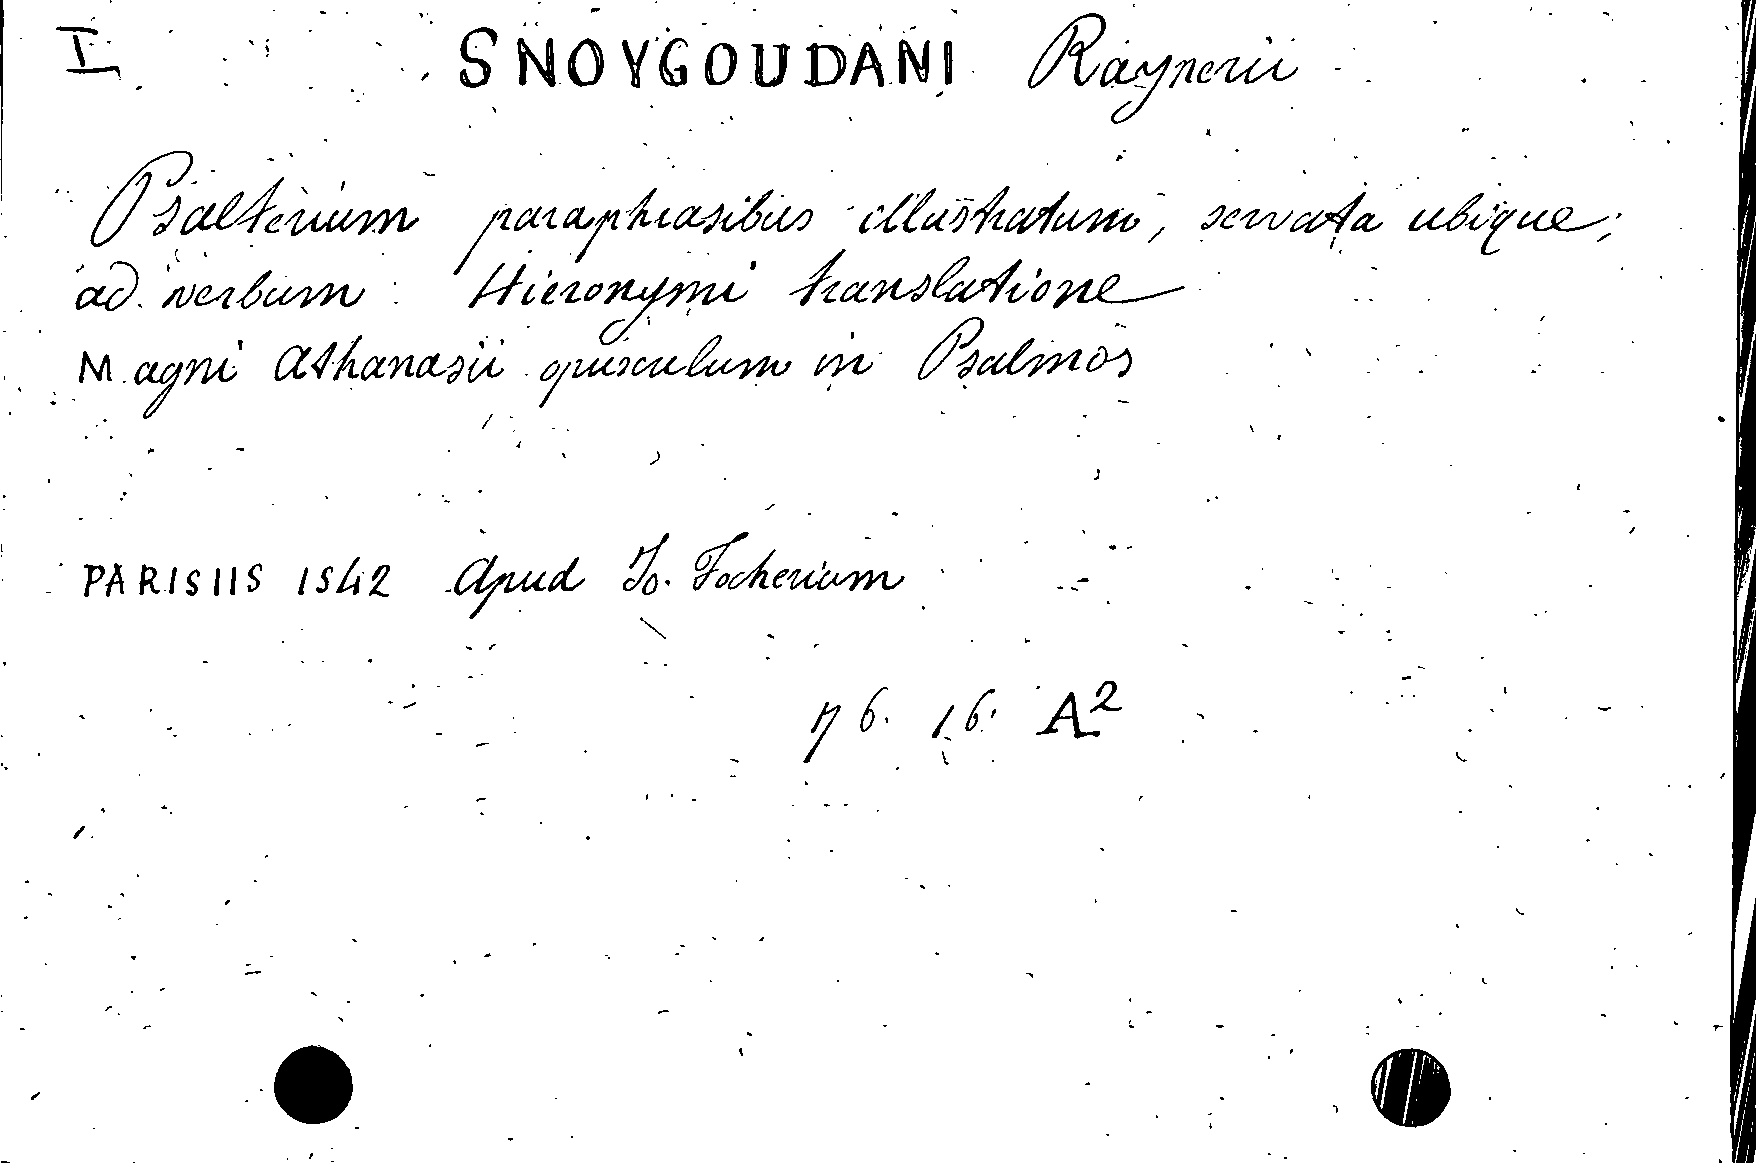 I SNOYGOUDANI Raynerii
Psalterium paraphrasibus illustratum, servata ubique;
ad verbum Hieronymi translatione
Magni Athanasii opusculum in Psalmos
PARISIIS 1542 Apud Jo. Focherium
76. 16. A²